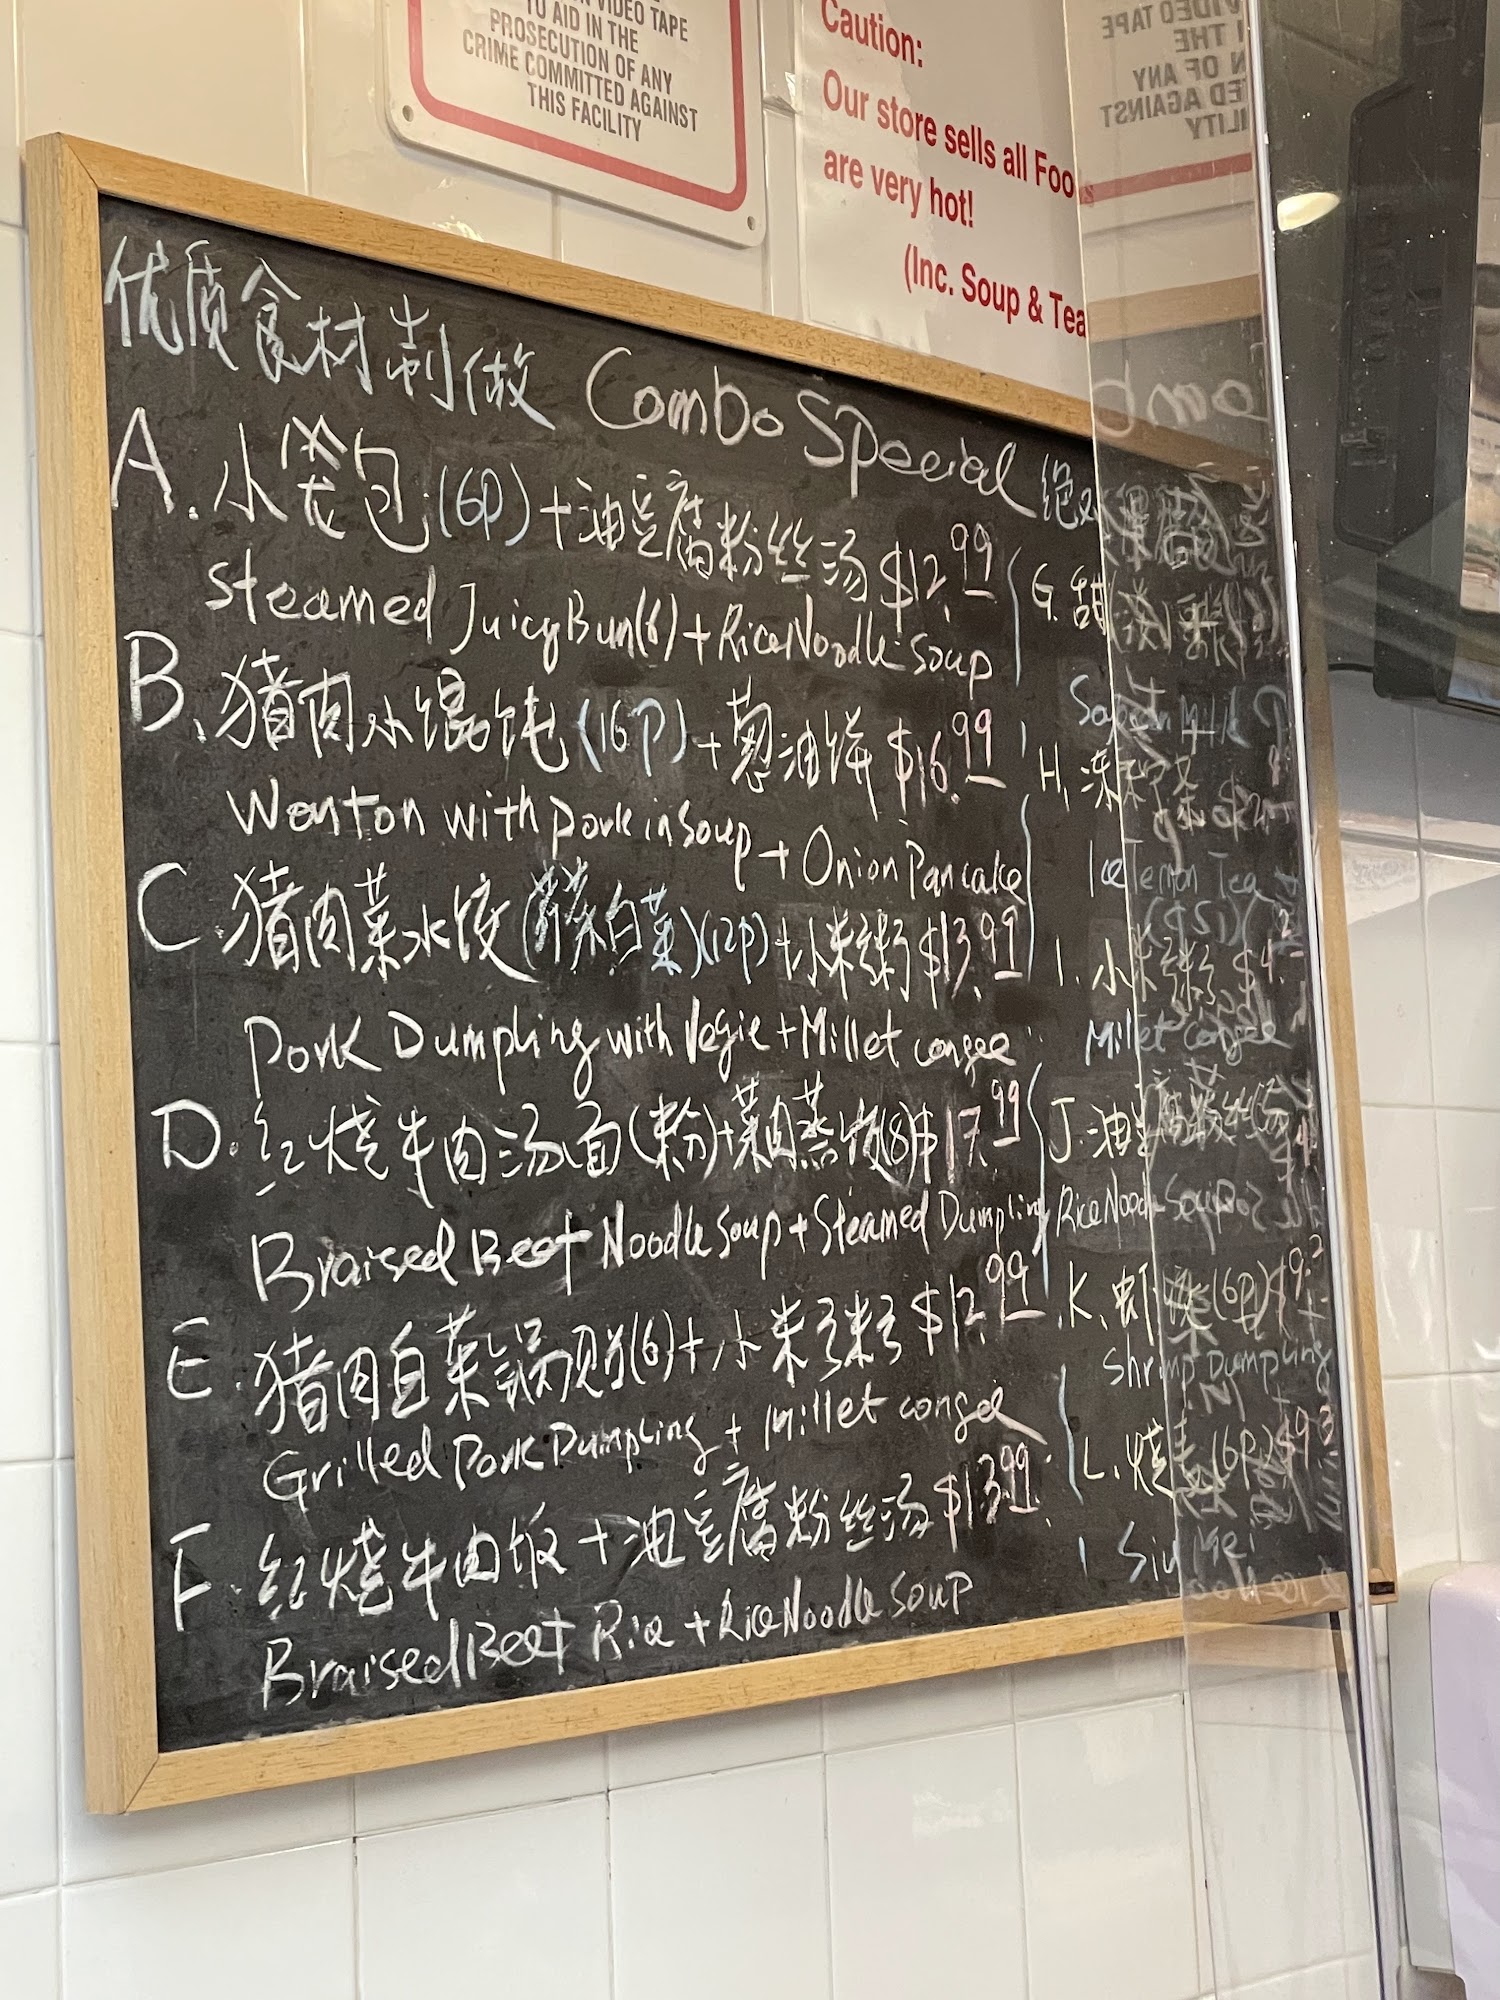 VIDEO TAPE
TO AID IN THE
PROSECUTION OF ANY
CRIME COMMITTED AGAINST
THIS FACILITY
Caution:
Our store sells all Foo
are very hot!
(Inc. Soup & Tea
优质食材制做 Combo Special 绝
A. 小笼包(6P)+油豆腐粉丝汤 $12.99
Steamed Juicy Bun(6)+Rice Noodle Soup
B. 猪肉小馄饨(16P)+葱油饼 $16.99
Wonton with pork in soup + Onion Pancake
C 猪肉菜水饺(白菜)(12P)+小米粥 $13.99
Pork Dumpling with Vegie + Millet congee
D. 红烧牛肉汤面(粉)+菜肉蒸饺(8)$17.99
Braised Beef Noodle Soup + Steamed Dumpling
E. 猪肉白菜锅贴(6)+小米粥 $12.99
Grilled Pork Dumpling + Millet congee
F. 红烧牛肉饭+油豆腐粉丝汤 $13.99
Braised Beef Rice + Rice Noodle Soup
G. 甜
Milk
H.
Ice Lemon Tea
I. 小米粥 $4.
Millet congee
J. 油豆腐粉丝
Rice Noodle Soup
K. 虾饺(6P)$9.2
Shrimp Dumpling
L. 烧卖(6P)$9.
Siu Mei